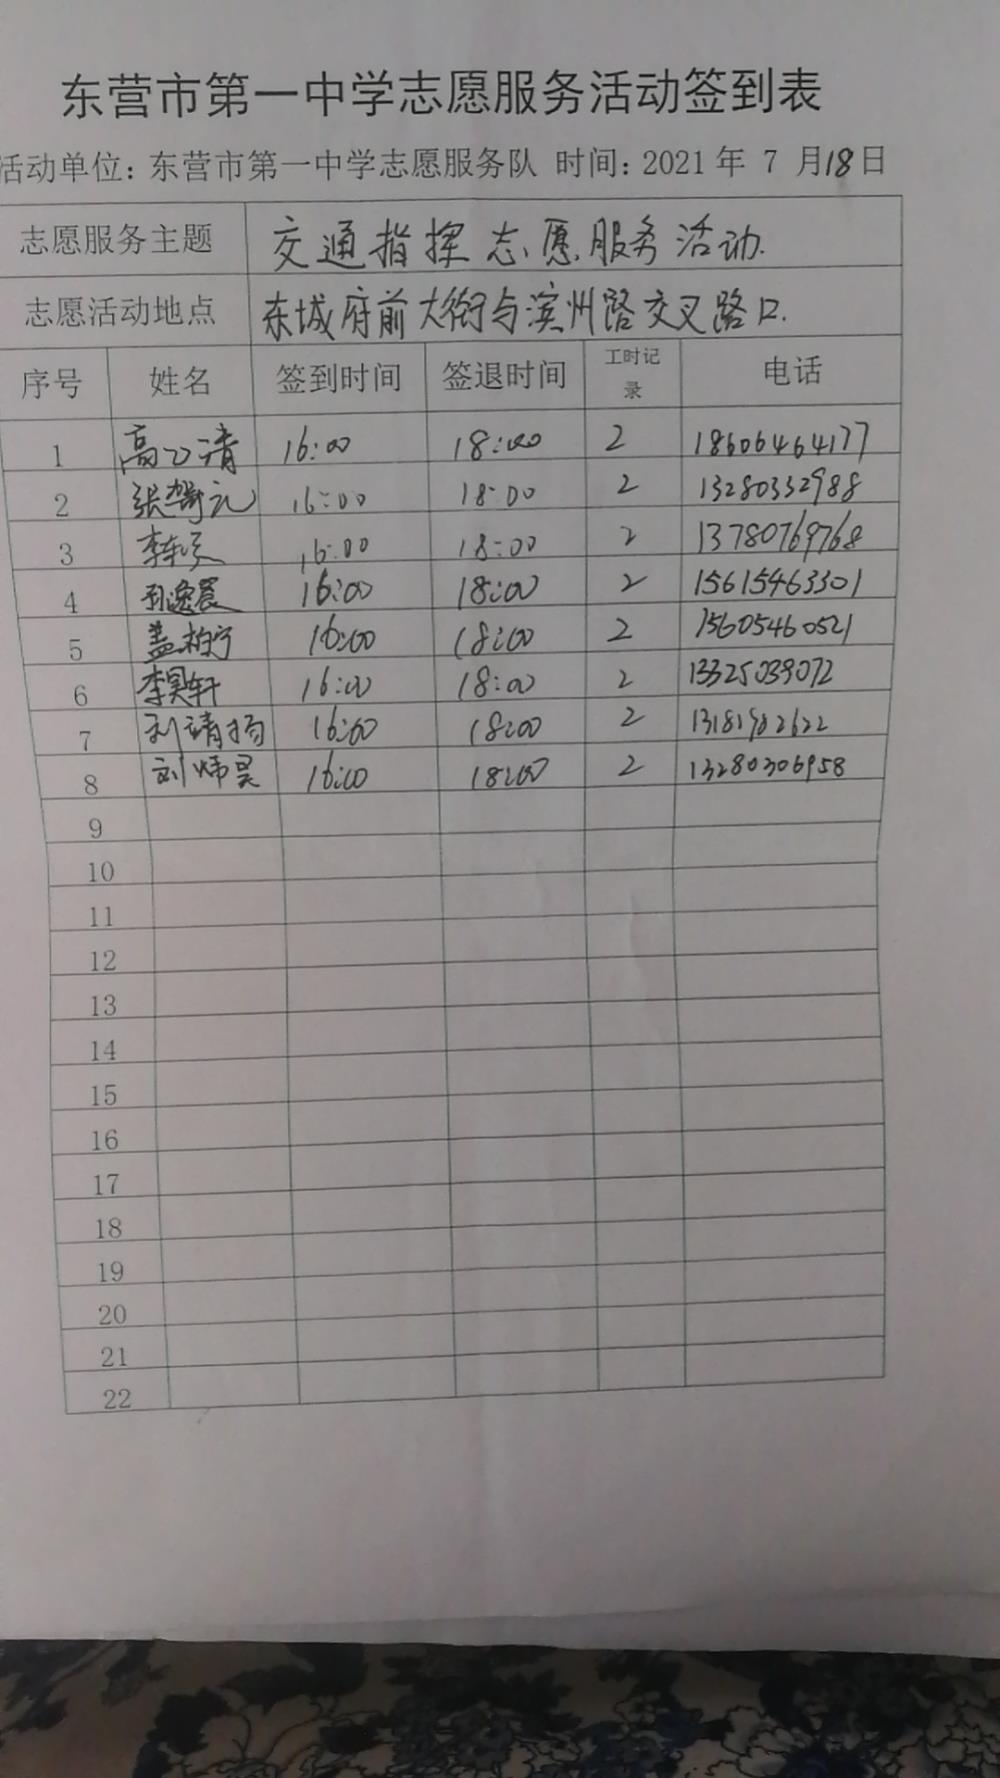 东营市第一中学志愿服务活动签到表
活动单位：东营市第一中学志愿服务队 时间：2021年 7 月18日
志愿服务主题 交通指挥志愿服务活动.
志愿活动地点 东城府前大街与滨州路交叉路口.
序号 姓名 签到时间 签退时间 工时记录 电话
1 高 清 16:00 18:00 2 18606464177
2 张 元 16:00 18:00 2 13280332988
3 李 16:00 18:00 2 13780769768
4 孙逸宸 16:00 18:00 2 15615463301
5 盖柏宁 16:00 18:00 2 15605460521
6 李昊轩 16:00 18:00 2 13325039072
7 刘靖扬 16:00 18:00 2 13181982622
8 刘炜昊 16:00 18:00 2 13280306958
9
10
11
12
13
14
15
16
17
18
19
20
21
22